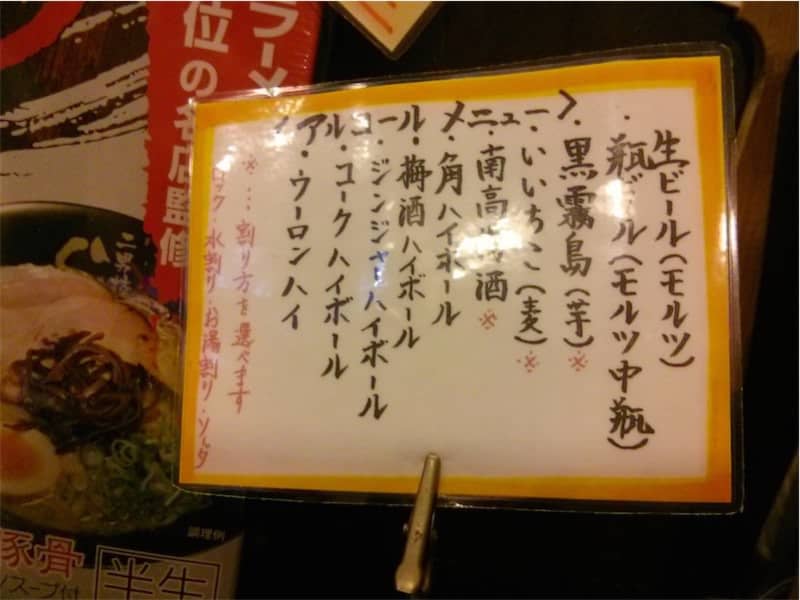 <アルコールメニュー>
生ビール(モルツ)
・瓶ビール(モルツ中瓶)
・黒霧島(芋)※
・いいちこ(麦)※
・南高梅酒※
・角ハイボール
・梅酒ハイボール
・ジンジャーハイボール
・コークハイボール
・ウーロンハイ
※…割り方を選べます
ロック・水割り・お湯割り・ソーダ
ラーメン
位の名店監修
調理例
豚骨
スープ付
半生